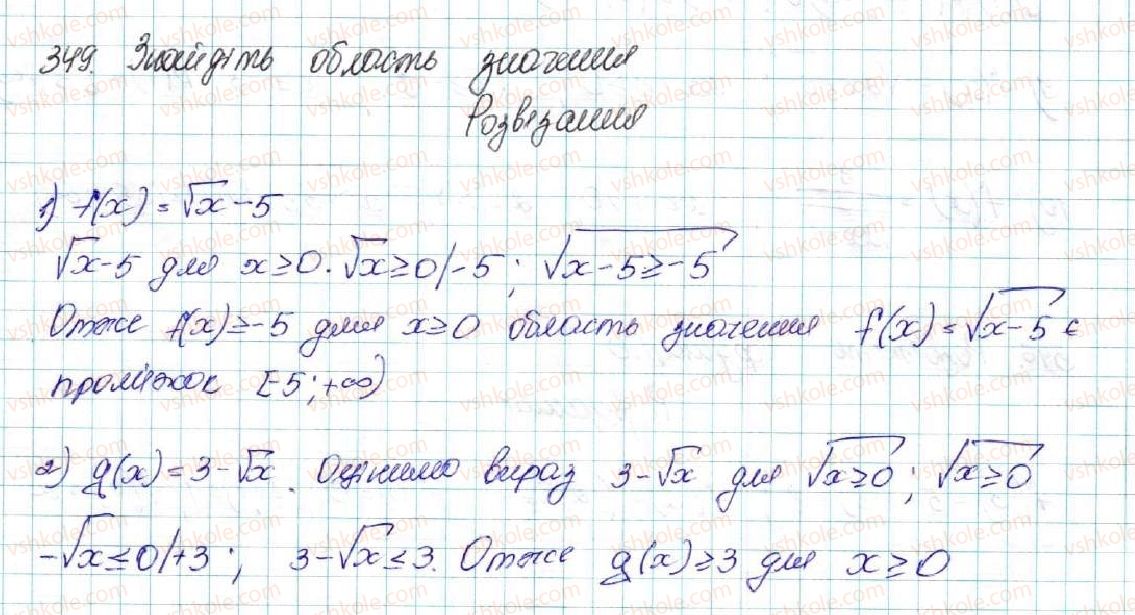 349. Знайдіть область значення
Розвязання
1) f(x) = √x - 5
√x - 5 для x ≥ 0. √x ≥ 0 /-5 ; √(x - 5 ≥ -5)
Отже f(x) ≥ -5 для x ≥ 0 область значення f(x) = √(x - 5) є
проміжок [-5; +∞)
2) g(x) = 3 - √x. Оцінимо вираз 3 - √x для √(x ≥ 0) ; √(x ≥ 0)
-√x ≤ 0 /+3 ; 3 - √x ≤ 3. Отже g(x) ≥ 3 для x ≥ 0